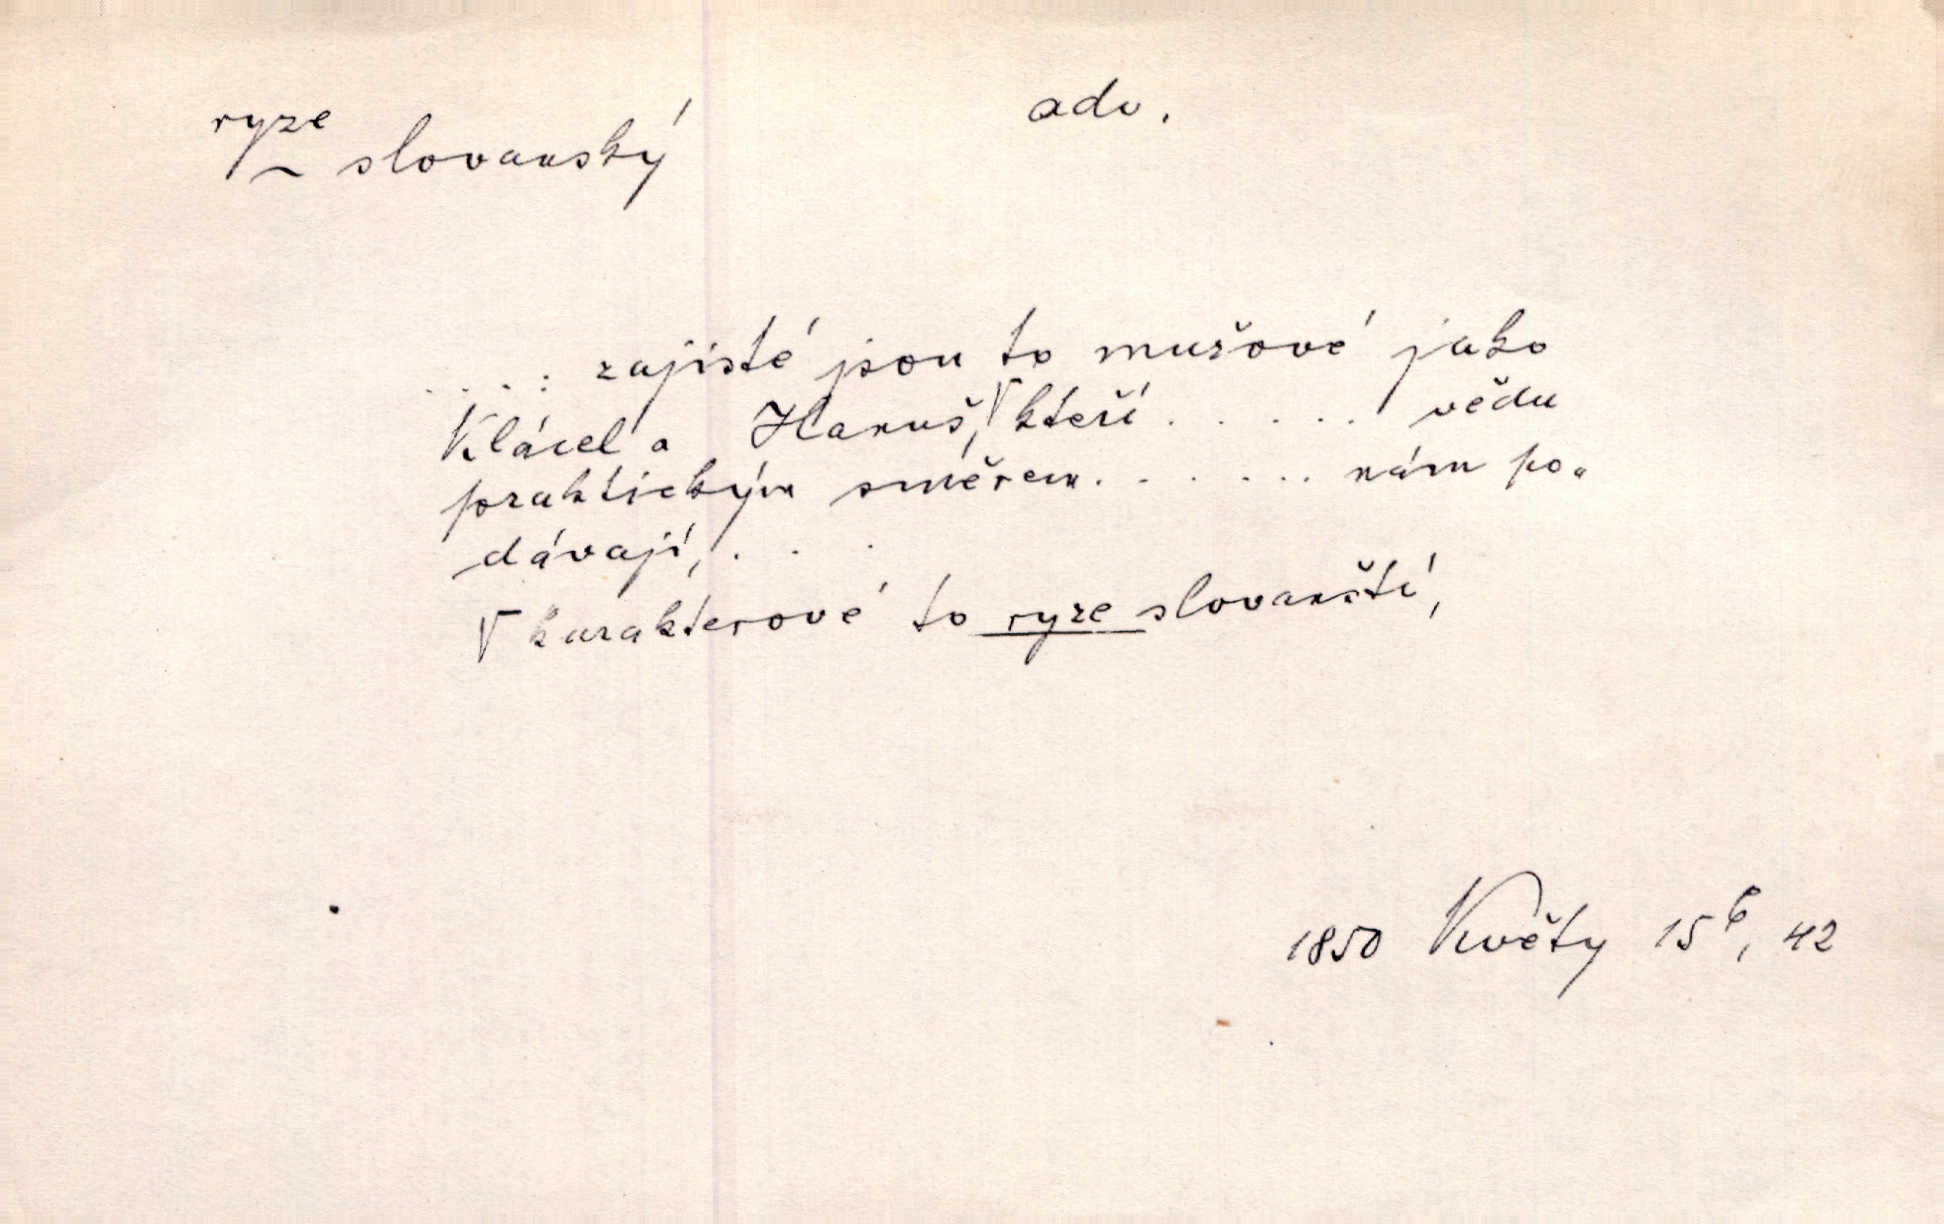 ryze adv.
~ slovanský
. . . . : zajisté jsou to mužové jako
Klácel a Hanuš,√ kteří . . . . . vědu
praktickým směrem. . . . . . nám po-
dávají, . . .
√ karakterové to ryze slovanští,
1850 Květy 15b, 42